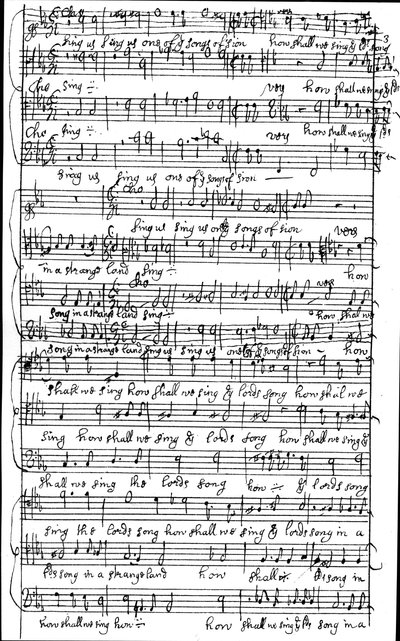 Cho
Sing us Sing us one of yͤ songs of sion how shall we sing yͤ ld song
Cho Sing ÷ vers how shall we sing yͤ lds
Cho sing ÷ vers how shall we sing yͤ lds
Sing us sing us one of yͤ songs of sion
Cho
Sing us Sing us one of yͤ songs of sion vers
in a strange land Sing ÷ how
Cho vers
Song in a strange land Sing ÷ how shall we
Song in a strange land sing us sing us one of yͤ songs of sion how
shall we sing how shall we sing yͤ lords song how shal we
sing how shall we sing yͤ lords song how shall we sing yͤ
shall we sing the lords song how ÷ yͤ lords song
sing the lords song how shall we sing yͤ lords song in a
lds song in a strange land how shall ÷ lds song in
how shall we sing how ÷ how shall we sing yͤ lds song in a